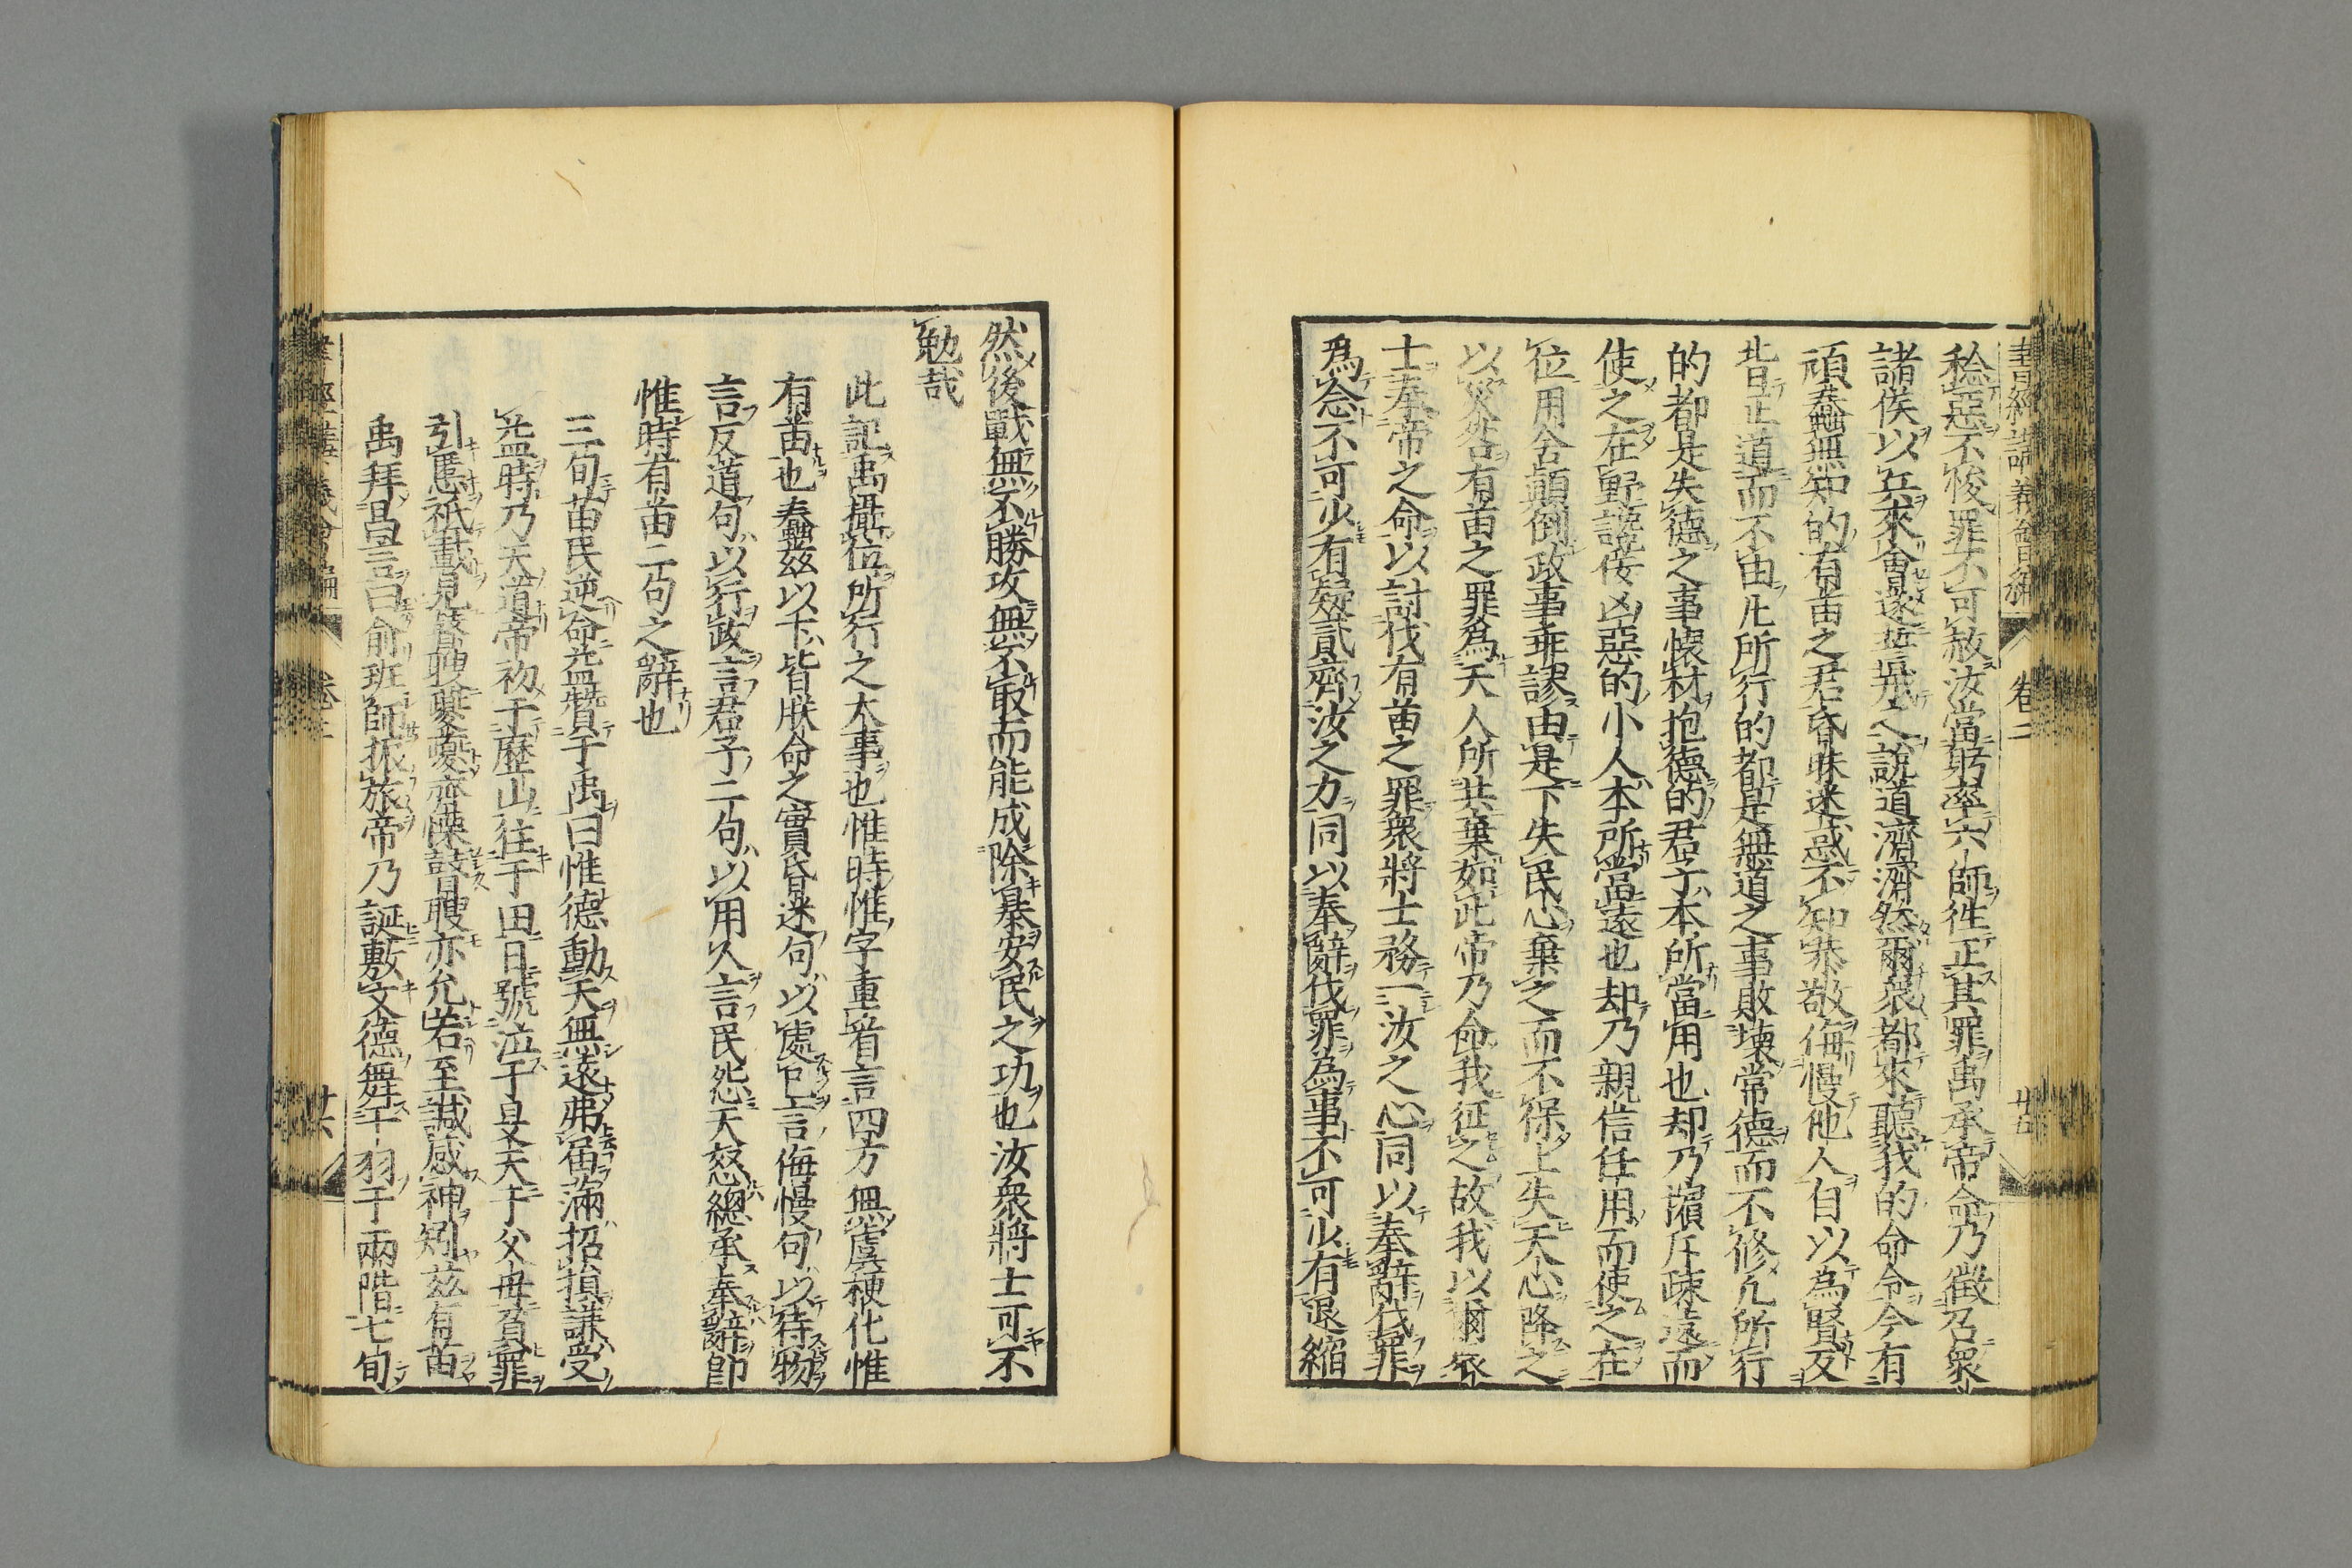 書經講義會編 卷二 廿五
稔惡不悛罪不可赦汝當躬率六師徃正其罪禹承帝命乃徴召衆
諸侯以兵來會遂誓戒之說道濟濟然爾衆都來聽我的命令今有
頑蠢無知的有苗之君昏昧迷惑不知恭敬侮慢他人自以為賢反
背正道而不由凢所行的都是無道之事敗壊常德而不修凢所行
的都是失德之事懐材抱德的君子本所當用也却乃擯斥疎遠而
使之在野讒佞凶惡的小人本所當遠也却乃親信任用而使之在
位用舍顛倒政事乖謬由是下失民心棄之而不保上失天心降之
以災咎有苗之罪為天人所共棄如此帝乃命我征之故我以爾衆
士奉帝之命以討伐有苗之罪衆將士務一汝之心同以奉辭伐罪
爲念不可少有疑貳齊汝之力同以奉辭伐罪為事不可少有退縮
然後戰無不勝攻無不取而能成除暴安民之功也汝衆將士可不
勉哉
此記禹攝位所行之大事也惟時惟字重看言四方無虞梗化惟
有苗也蠢茲以下皆朕命之實昏迷句以處己言侮慢句以待物
言反道句以行政言君子二句以用人言民怨天怒總承奉辭卽
惟時有苗二句之辭也
三旬苗民逆命益贊于禹曰惟德動天無遠弗屆滿招損謙受
益時乃天道帝初于歴山往于田日號泣于旻天于父母負罪
引慝祇載見瞽瞍夔夔齊慄瞽瞍亦允若至諴感神矧茲有苗
禹拜昌言曰俞班師振旅帝乃誕敷文德舞干羽于兩階七旬
書經講義會編 卷二 廿六